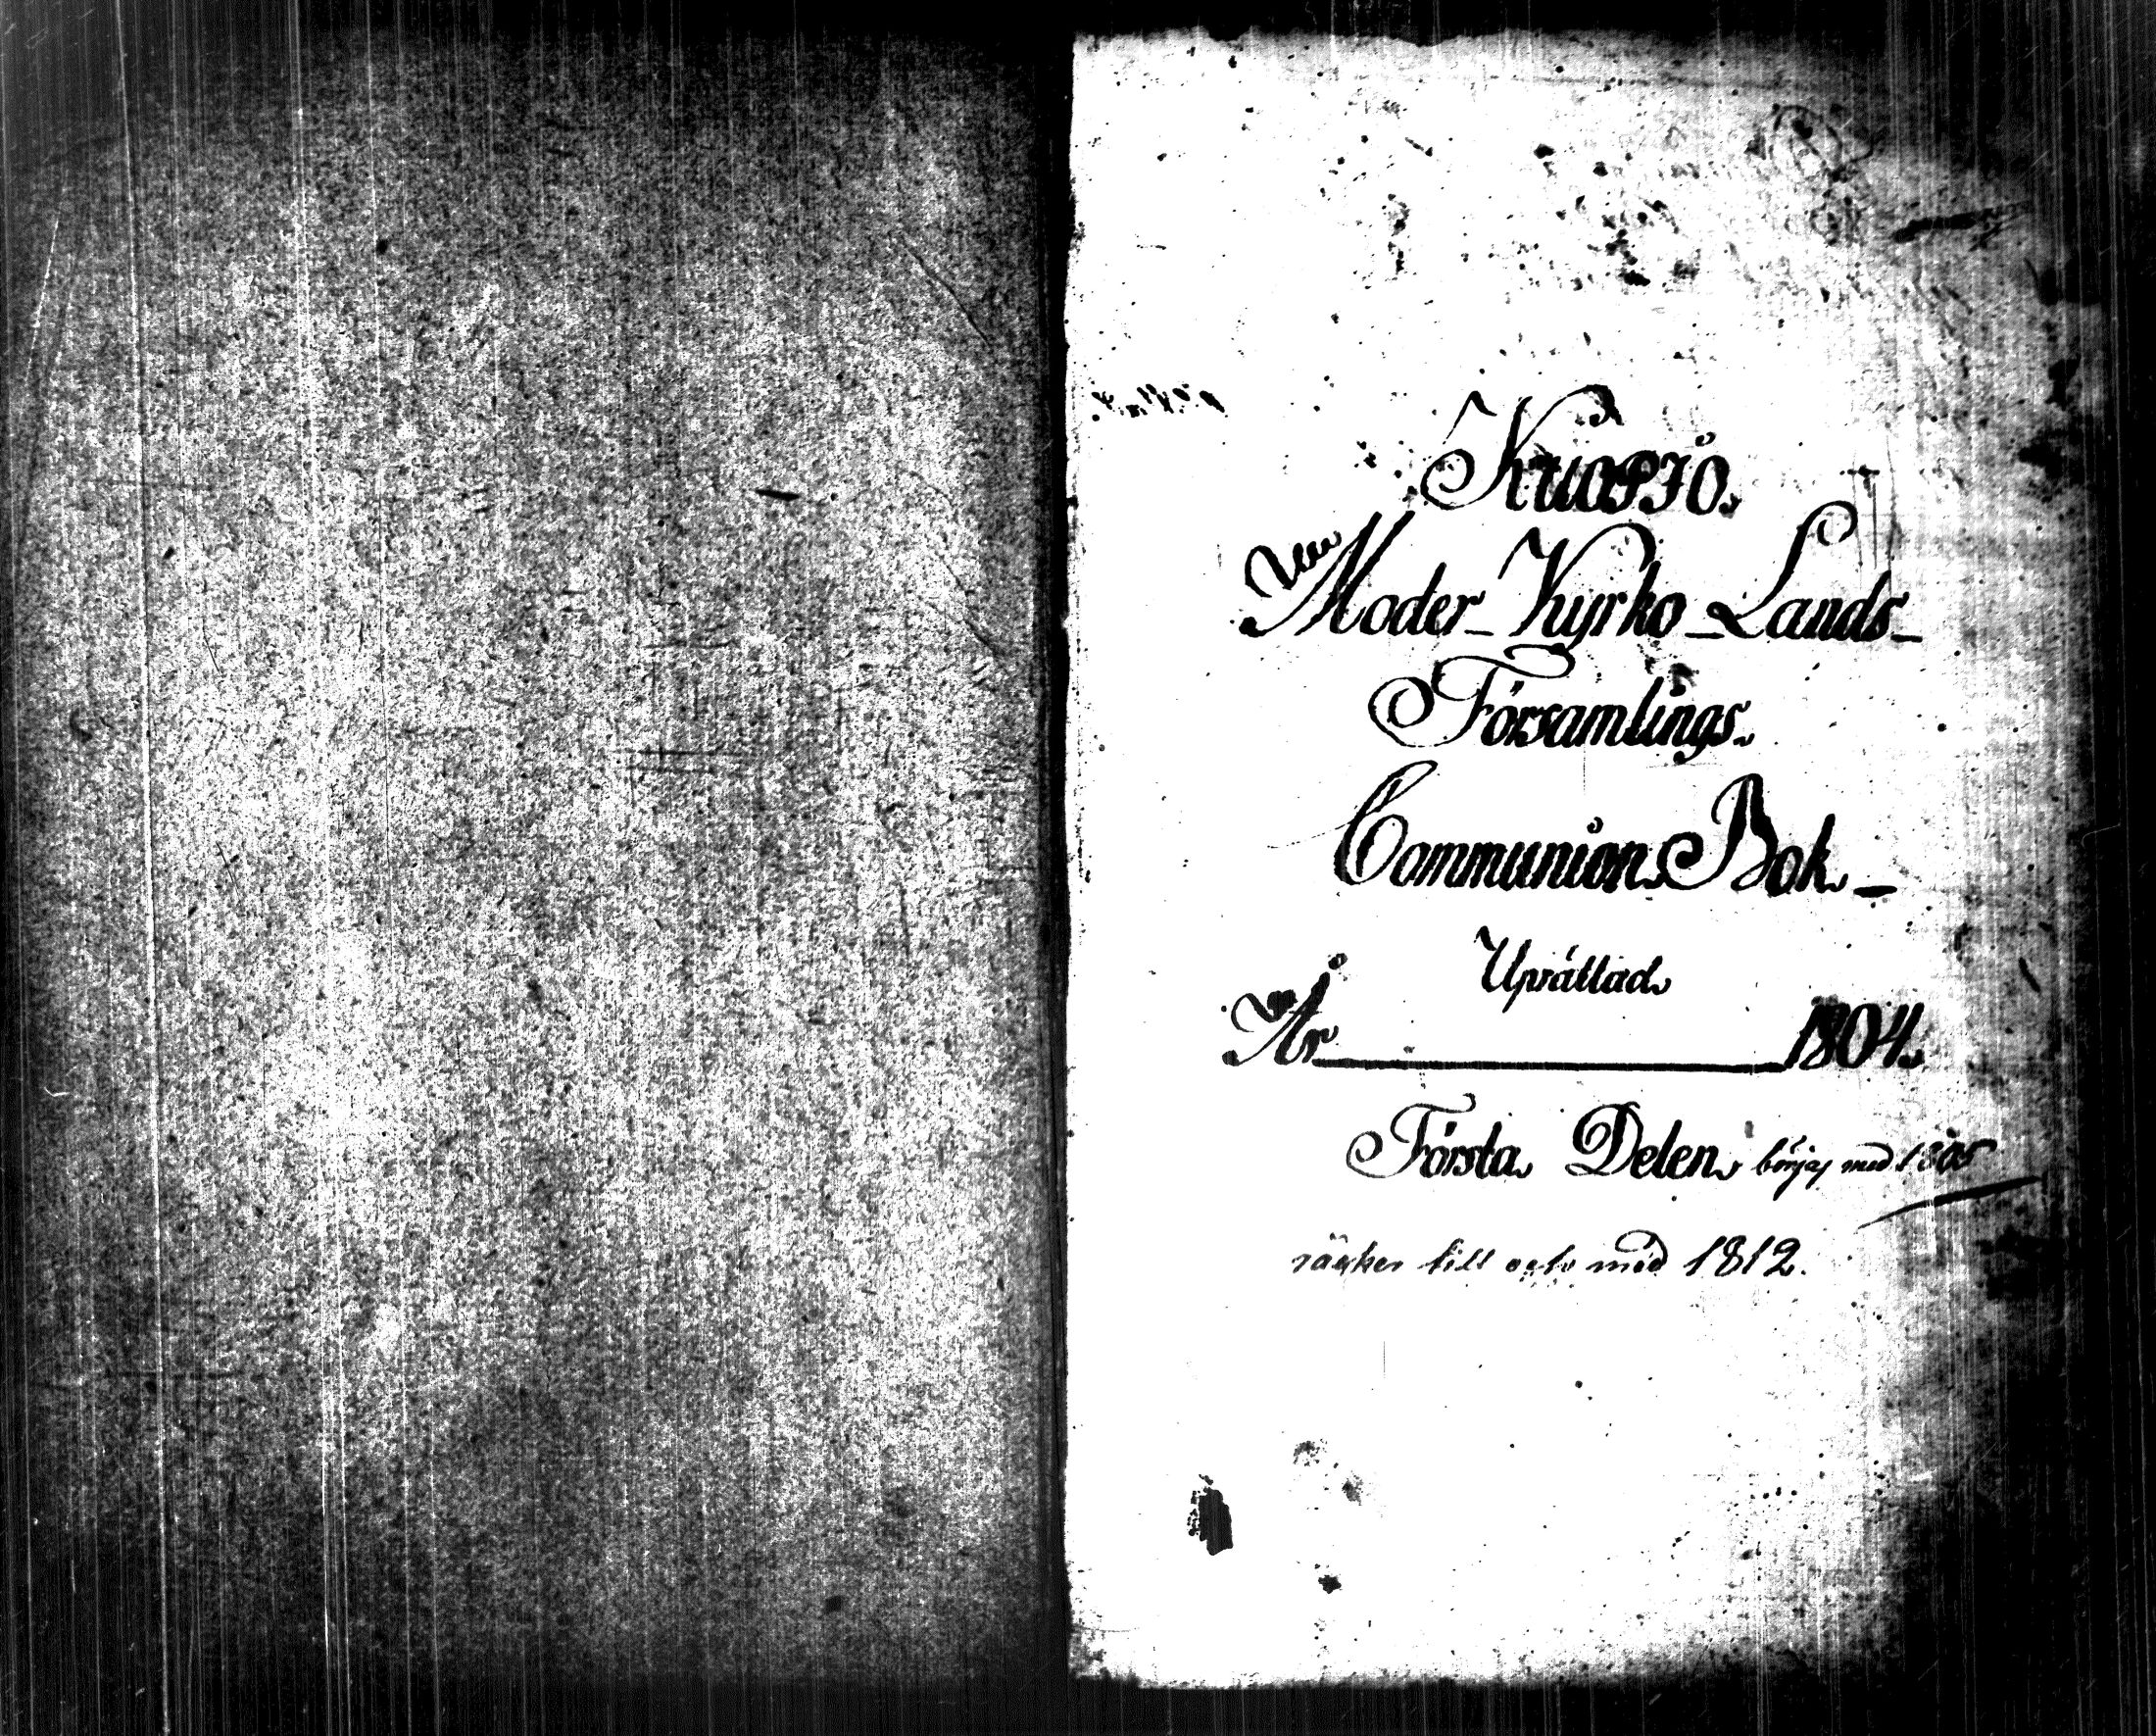 Kuopio
Moder-Kyrko-Lands-
Församlings
Communion Bok -
Uprättad
År 1804.
Första Delen börjas med 1805
räcker till och med 1812.